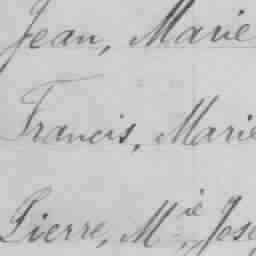 Jean, Marie
Francis, Marie
Pierre, Mie, Jose